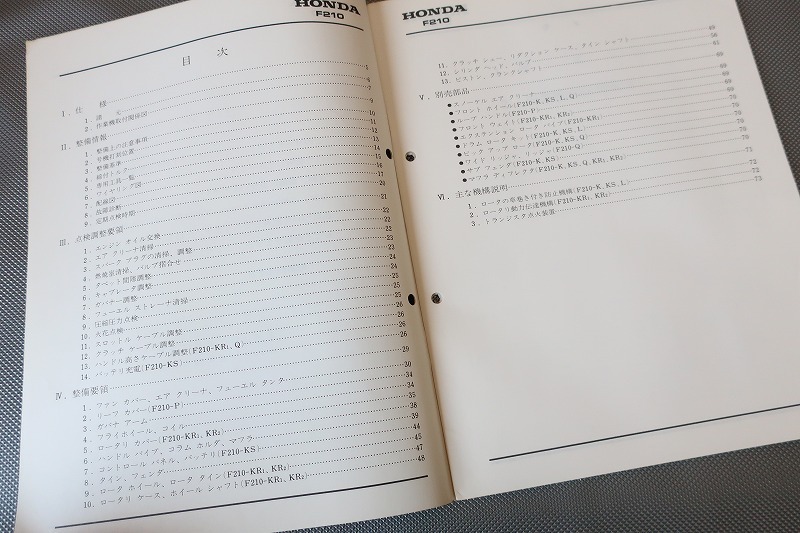 HONDA
F210
目 次
Ⅰ. 仕 様 5
1. 諸 元 6
2. 作業機取付関係図 7
Ⅱ. 整備情報 9
1. 整備上の注意事項 10
2. 号機打刻位置 11
3. 整備基準 12
4. 締付トルク 13
5. 専用工具一覧 15
6. ワイヤリング図 16
7. 配線図 17
8. 故障診断 20
9. 定期点検時期
Ⅲ. 点検調整要領 21
1. エンジン オイル交換 22
2. エア クリーナ清掃 22
3. スパーク プラグの清掃、調整 23
4. 燃焼室清掃、バルブ摺合せ 23
5. タペット間隙調整 24
6. キャブレータ調整 24
7. ガバナー調整 25
8. フューエル ストレーナ清掃 25
9. 圧縮圧力点検 25
10. 火花点検 26
11. スロットル ケーブル調整 26
12. クラッチ ケーブル調整 26
13. ハンドル高さケーブル調整(F210-KR₁, Q) 26
14. バッテリ充電(F210-KS)
Ⅳ. 整備要領 29
1. ファン カバー、エア クリーナ、フューエル タンク 30
2. リーフ カバー(F210-P) 34
3. ガバナ アーム 34
4. フライホイール、コイル 35
5. ロータリ カバー(F210-KR₁, KR₂) 38
6. ハンドル パイプ、コラム ホルダ、マフラ 39
7. コントロール パネル、バッテリ(F210-KS) 44
8. タイン、フェンダ 45
9. ロータ ホイール、ロータ タイン(F210-KR₁, KR₂) 47
10. ロータリ ケース、ホイール シャフト(F210-KR₁, KR₂) 48
HONDA
F210
11. クラッチ シュー、リダクション ケース、タイン シャフト 49
12. シリンダ ヘッド、バルブ 56
13. ピストン、クランクシャフト 61
Ⅴ. 別売部品 69
●スノーケル エア クリーナ 69
●フロント ホイール(F210-K, KS, L, Q) 69
●ループ ハンドル(F210-P) 69
●フロント ウェイト(F210-KR₁, KR₂) 70
●エクステンション ロータ パイプ(F210-KR₁) 70
●ドラム ロータ キット(F210-K, KS, L) 70
●ピータ アップ ロータ(F210-KS, Q) 70
●ワイド リッジャ、リッジャ(F210-Q) 70
●サブ フェンダ(F210-K, KS)
●マフラ ディフレクタ(F210-K, KS, Q, KR₁, KR₂)
Ⅵ. 主な機構説明 72
1. ロータの草巻き付き防止機構(F210-K, KS, L) 72
2. ロータリ動力伝達機構(F210-KR₁, KR₂) 73
3. トランジスタ点火装置